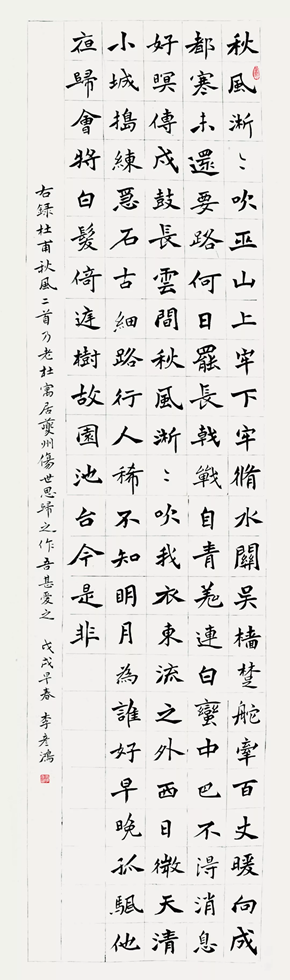 秋風淅〻吹巫山上牢下牢脩水關吳檣楚舵牽百丈暖向成
都寒未還要路何日罷長戟戰自青羌連白蠻中巴不得消息
好暝傳戍鼓長雲間秋風淅〻吹我衣東流之外西日微天清
小城搗練急石古細路行人稀不知明月為誰好早晚孤颿他
夜歸會將白髮倚庭樹故園池台今是非
右録杜甫秋風二首乃老杜寓居夔州傷世思歸之作吾甚愛之 戊戌早春 李彥鴻